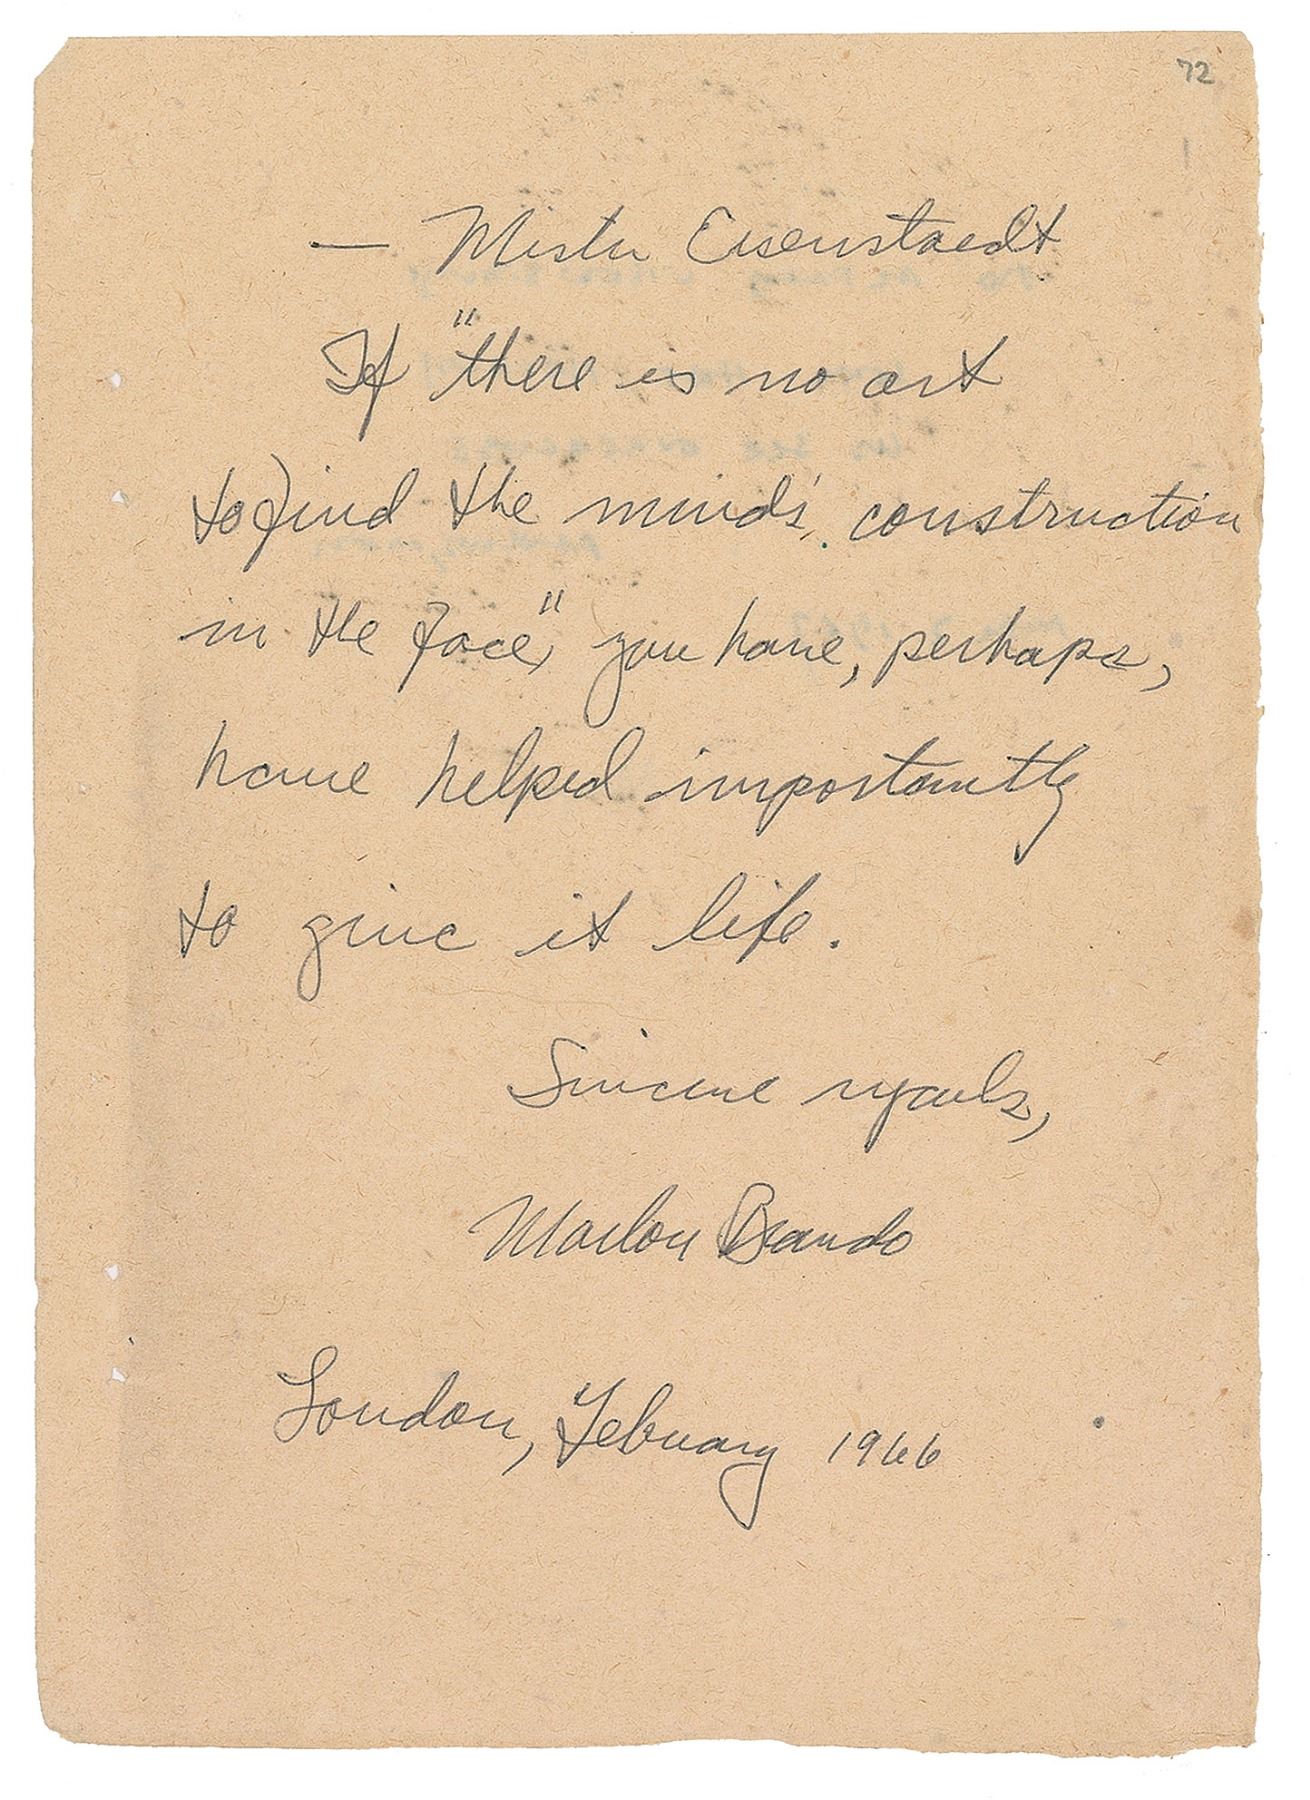 72
— Mister Eisenstaedt
If "there is no art
to find the mind's construction
in the face," you have, perhaps,
have helped importantly
to give it life.
Sincere regards,
Marlon Brando
London, February 1966